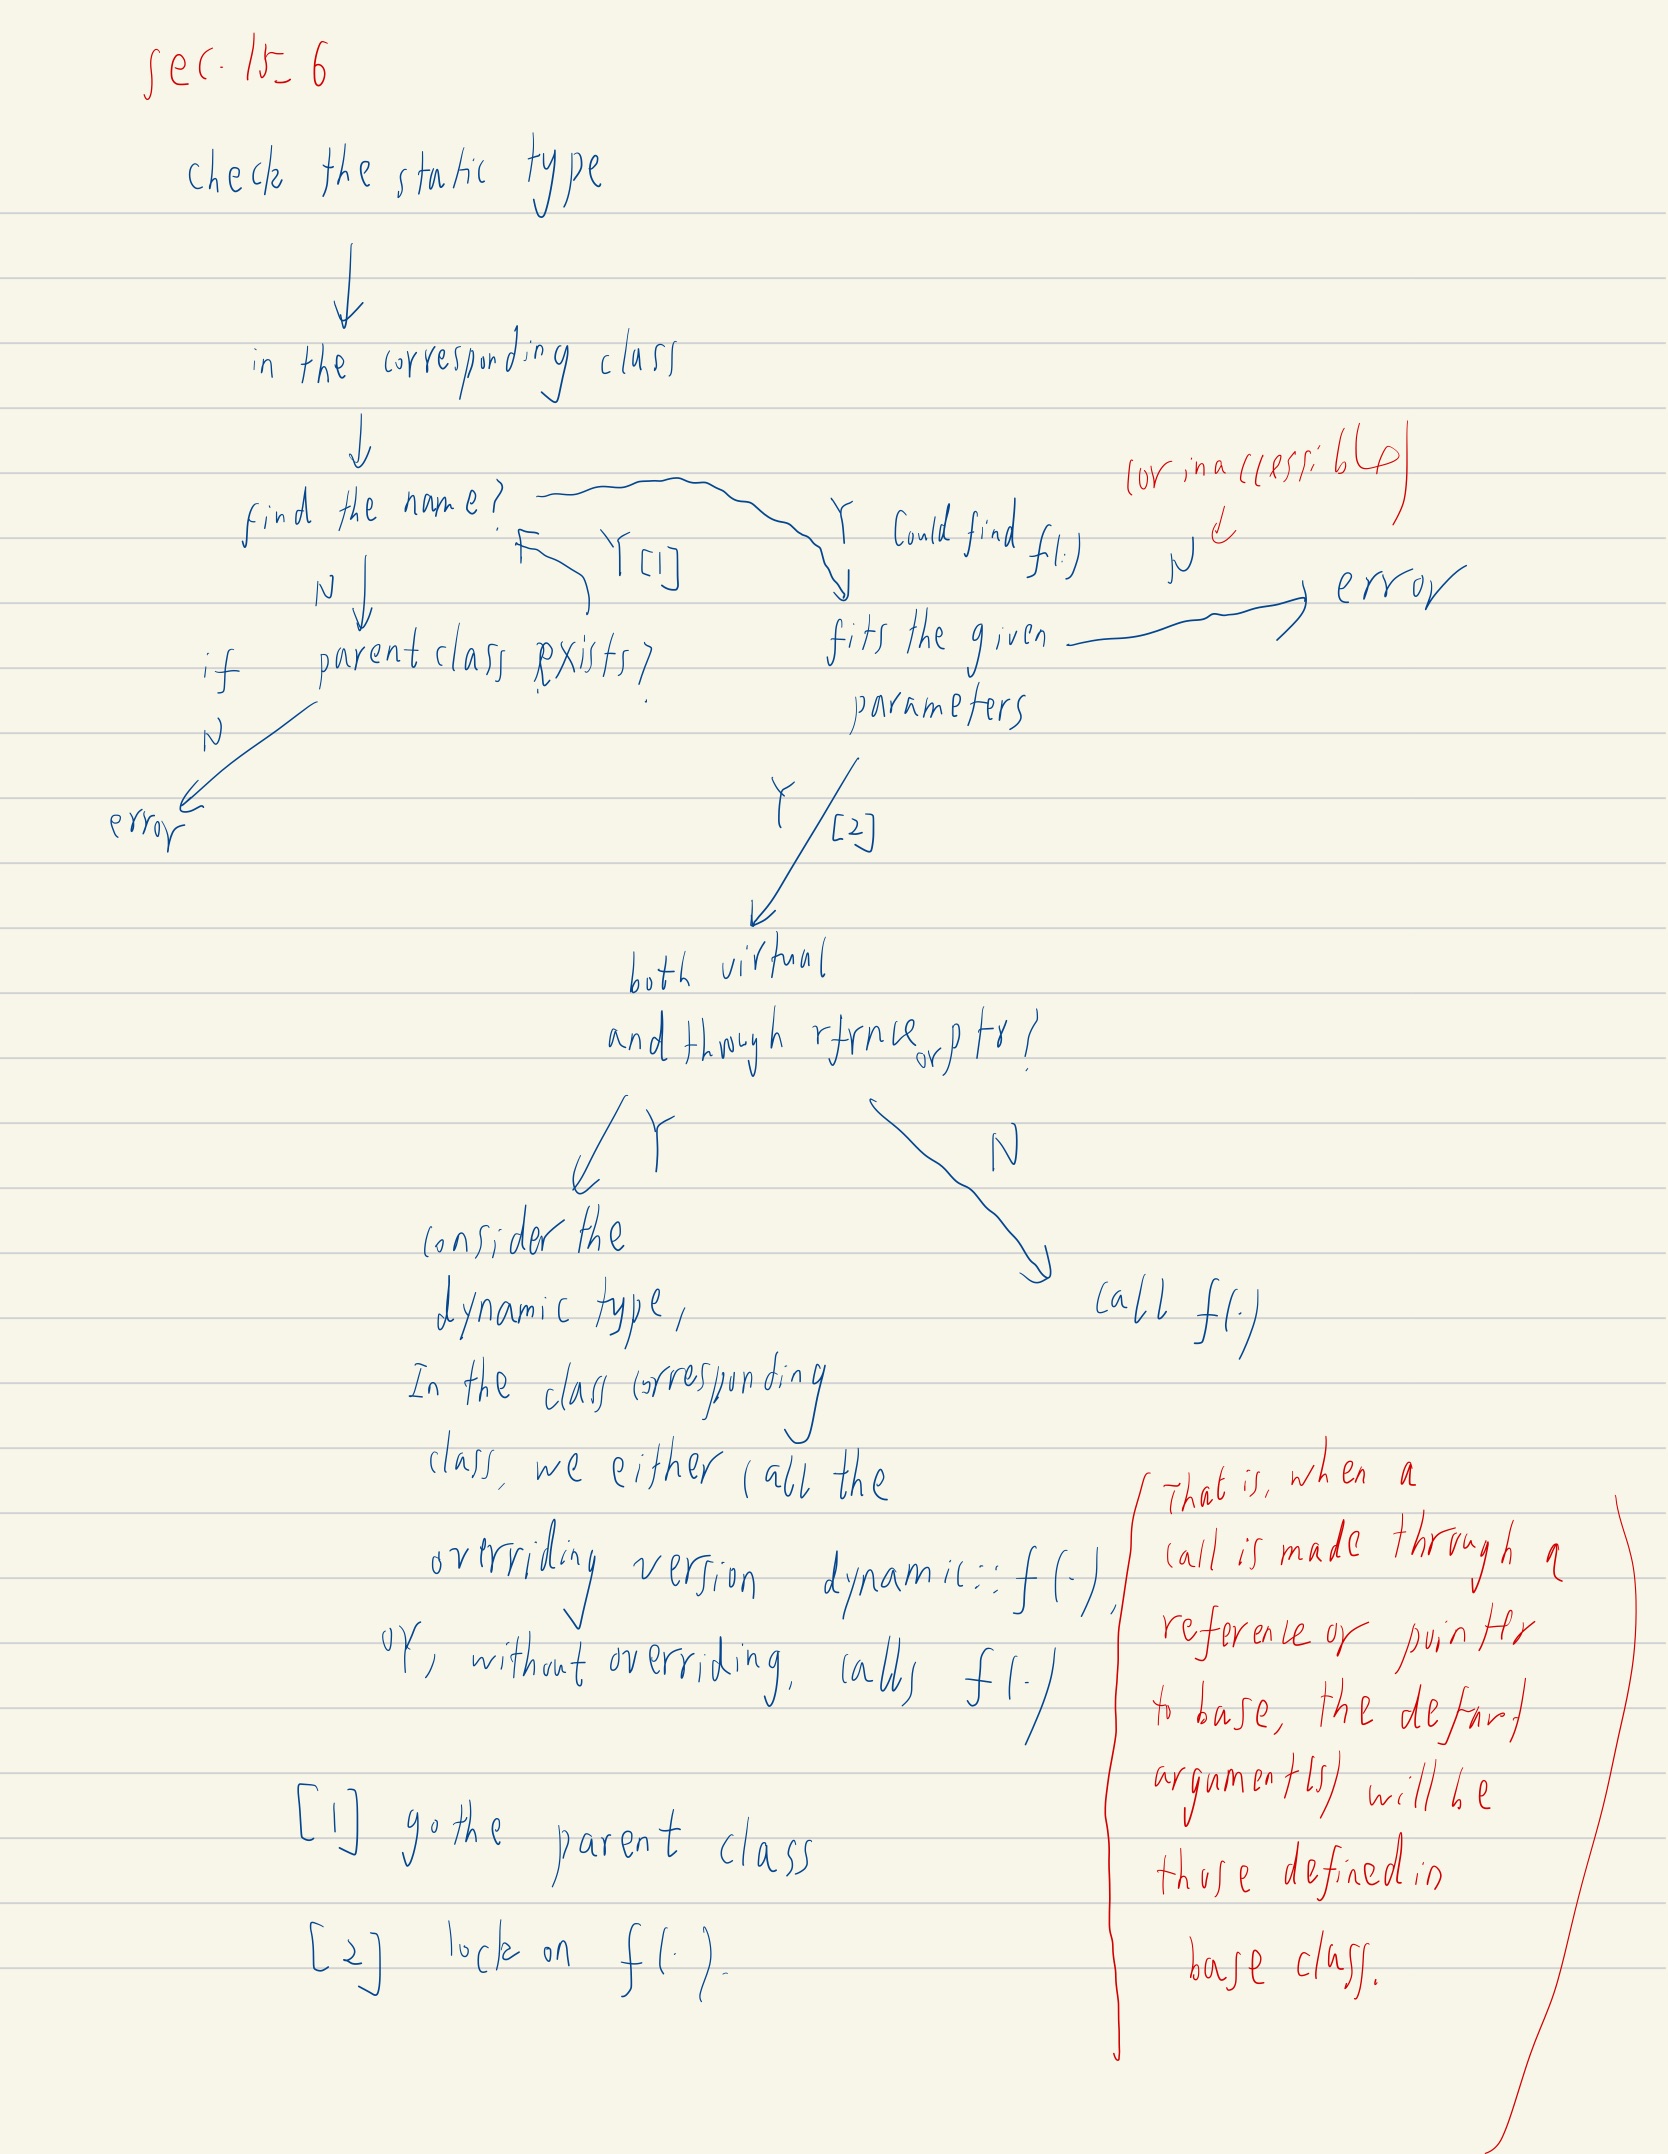 sec. 15_6
check the static type
in the corresponding class
(or inaccessible)
find the name?
Y Could find f(.)
N
Y [1]
error
N
fits the given
if parent class exists?
parameters
N
Y
[2]
error
both virtual
and through rfrnce or ptr?
Y
N
consider the
dynamic type,
call f(.)
In the class corresponding
class, we either call the
overriding version dynamic::f(.),
or, without overriding, calls f(.)
That is, when a
call is made through a
reference or pointer
to base, the
argument(s) will be
those defined in
base class.
[1] go the parent class
[2] lock on f(.).